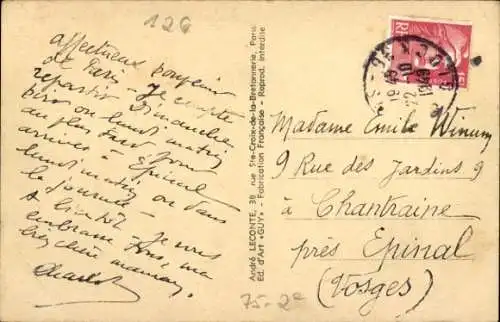 126
affectueux souvenir
de Paris – Je compte
repartir Dimanche
soir ou lundi matin
au plus tard pour
arriver à Epinal
lundi matin ou dans
la journée –
à bientôt – Je vous
embrasse tous, ma
bien chère maman.
Charlot
André LECONTE, 38 rue Ste-Croix-de-la-Bretonnerie, Paris
Ed. d'Art «GUY» – Fabrication Française – Reprod. interdite
Madame Emile Winum
9 Rue des Jardins 9
à Chantraine
près Epinal
(Vosges)
75-2e